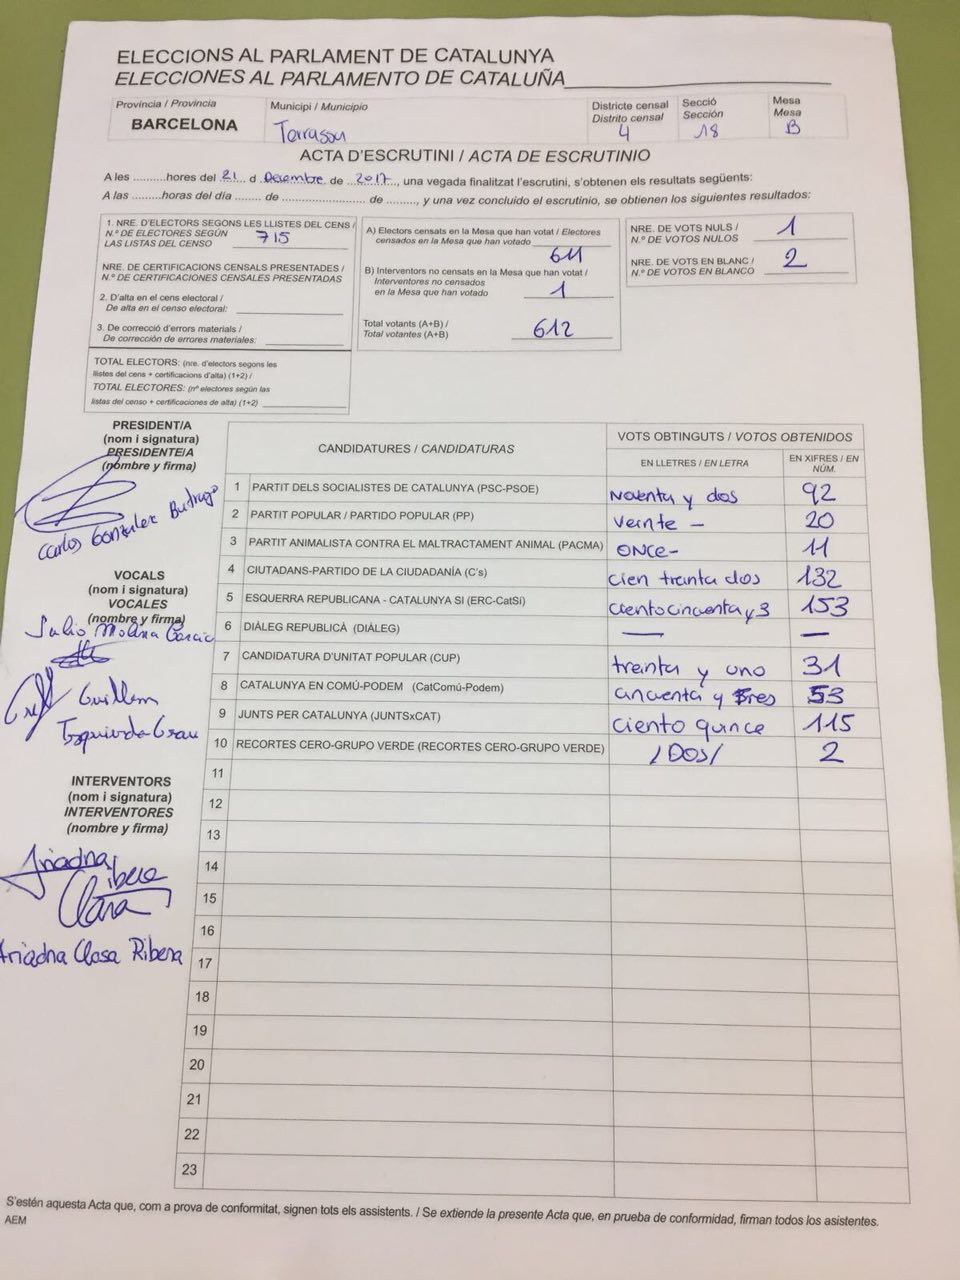 ELECCIONS AL PARLAMENT DE CATALUNYA
ELECCIONES AL PARLAMENTO DE CATALUÑA
Província / Provincia
BARCELONA
Municipi / Municipio
Terrassa
Districte censal
Distrito censal
4
Secció
Sección
18
Mesa
Mesa
B
ACTA D'ESCRUTINI / ACTA DE ESCRUTINIO
A les ..........hores del 21 d Decembre de 2017, una vegada finalitzat l'escrutini, s'obtenen els resultats següents:
A las .........horas del día ........ de ........................ de ........., y una vez concluido el escrutinio, se obtienen los siguientes resultados:
1. NRE. D'ELECTORS SEGONS LES LLISTES DEL CENS /
N.º DE ELECTORES SEGÚN
LAS LISTAS DEL CENSO
715
NRE. DE CERTIFICACIONS CENSALS PRESENTADES /
N.º DE CERTIFICACIONES CENSALES PRESENTADAS
2. D'alta en el cens electoral /
De alta en el censo electoral:
3. De correcció d'errors materials /
De corrección de errores materiales:
TOTAL ELECTORS: (nre. d'electors segons les
llistes del cens + certificacions d'alta) (1+2) /
TOTAL ELECTORES: (nº electores según las
listas del censo + certificaciones de alta) (1+2)
A) Electors censats en la Mesa que han votat / Electores
censados en la Mesa que han votado
611
B) Interventors no censats en la Mesa que han votat /
Interventores no censados
en la Mesa que han votado
1
Total votants (A+B) /
Total votantes (A+B)
612
NRE. DE VOTS NULS /
N.º DE VOTOS NULOS
1
NRE. DE VOTS EN BLANC /
N.º DE VOTOS EN BLANCO
2
PRESIDENT/A
(nom i signatura)
PRESIDENTE/A
(nombre y firma)
Carlos Gonzalez Buitrago
VOCALS
(nom i signatura)
VOCALES
(nombre y firma)
Julio Molina Garcia
Guillem
Izquierdo Grau
INTERVENTORS
(nom i signatura)
INTERVENTORES
(nombre y firma)
Ariadna
Ribera
Clara
Ariadna Closa Ribera
CANDIDATURES / CANDIDATURAS
VOTS OBTINGUTS / VOTOS OBTENIDOS
EN LLETRES / EN LETRA
EN XIFRES / EN NÚM.
1 PARTIT DELS SOCIALISTES DE CATALUNYA (PSC-PSOE) Noventa y dos 92
2 PARTIT POPULAR / PARTIDO POPULAR (PP) veinte — 20
3 PARTIT ANIMALISTA CONTRA EL MALTRACTAMENT ANIMAL (PACMA) ONCE- 11
4 CIUTADANS-PARTIDO DE LA CIUDADANÍA (C's) cien treinta dos 132
5 ESQUERRA REPUBLICANA - CATALUNYA SÍ (ERC-CatSí) ciento cincuenta y 3 153
6 DIÀLEG REPUBLICÀ (DIÀLEG) — —
7 CANDIDATURA D'UNITAT POPULAR (CUP) treinta y uno 31
8 CATALUNYA EN COMÚ-PODEM (CatComú-Podem) cincuenta y tres 53
9 JUNTS PER CATALUNYA (JUNTSxCAT) ciento quince 115
10 RECORTES CERO-GRUPO VERDE (RECORTES CERO-GRUPO VERDE) /DOS/ 2
11
12
13
14
15
16
17
18
19
20
21
22
23
S'estén aquesta Acta que, com a prova de conformitat, signen tots els assistents. / Se extiende la presente Acta que, en prueba de conformidad, firman todos los asistentes.
AEM